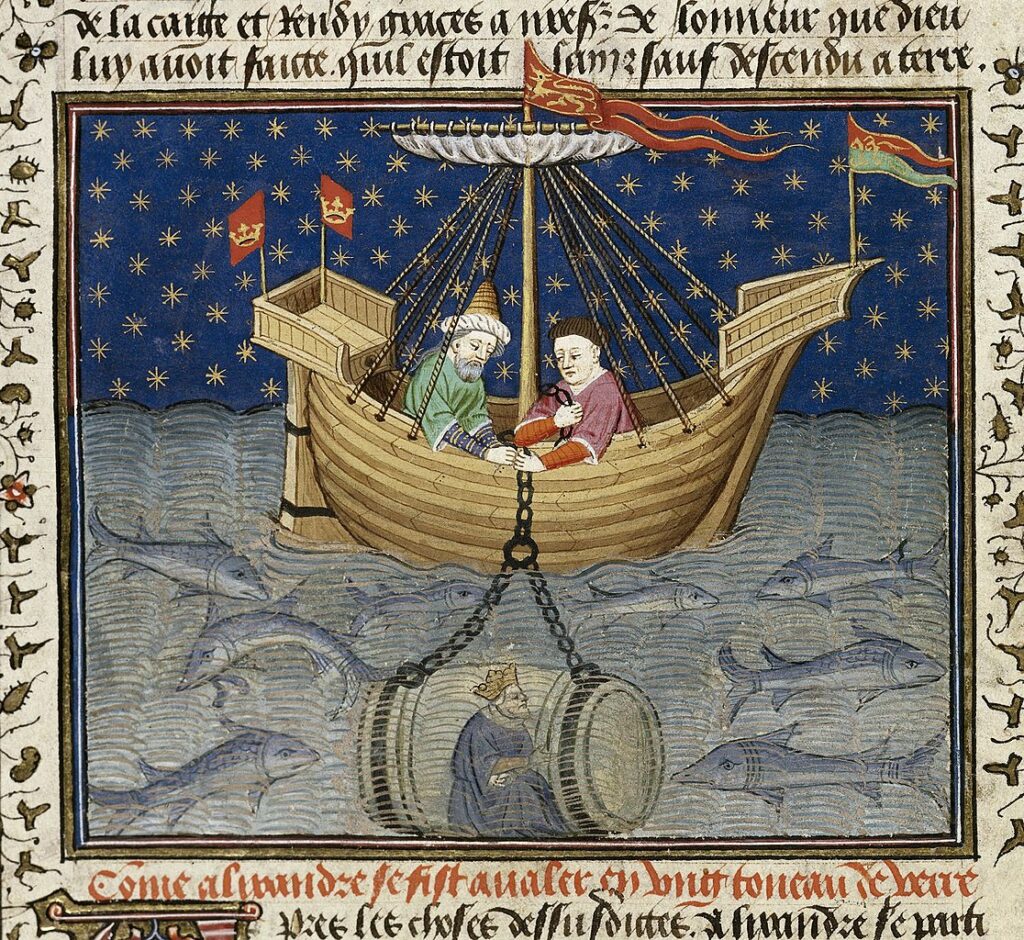 de la caige et Rendy graces a nresr̃. de lonneur que dieu
luy auoit faicte. quil estoit sain & sauf descendu a terre.
Come alixandre se fist aualer en vng toneau de verre
pres les choses dessusdictes. Alixandre se parti